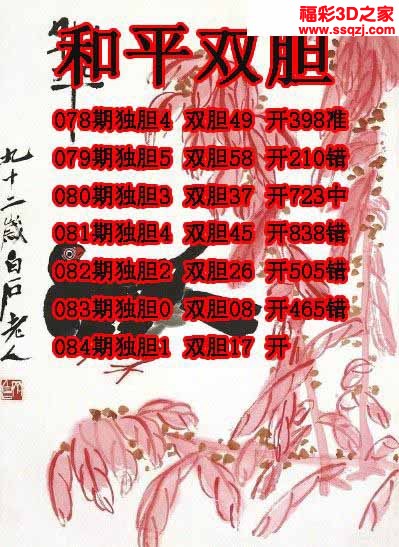 福彩3D之家
www.ssqzj.com
和平双胆
078期独胆4 双胆49 开398准
079期独胆5 双胆58 开210错
080期独胆3 双胆37 开723中
081期独胆4 双胆45 开838错
082期独胆2 双胆26 开505错
083期独胆0 双胆08 开465错
084期独胆1 双胆17 开
九十二岁白石老人